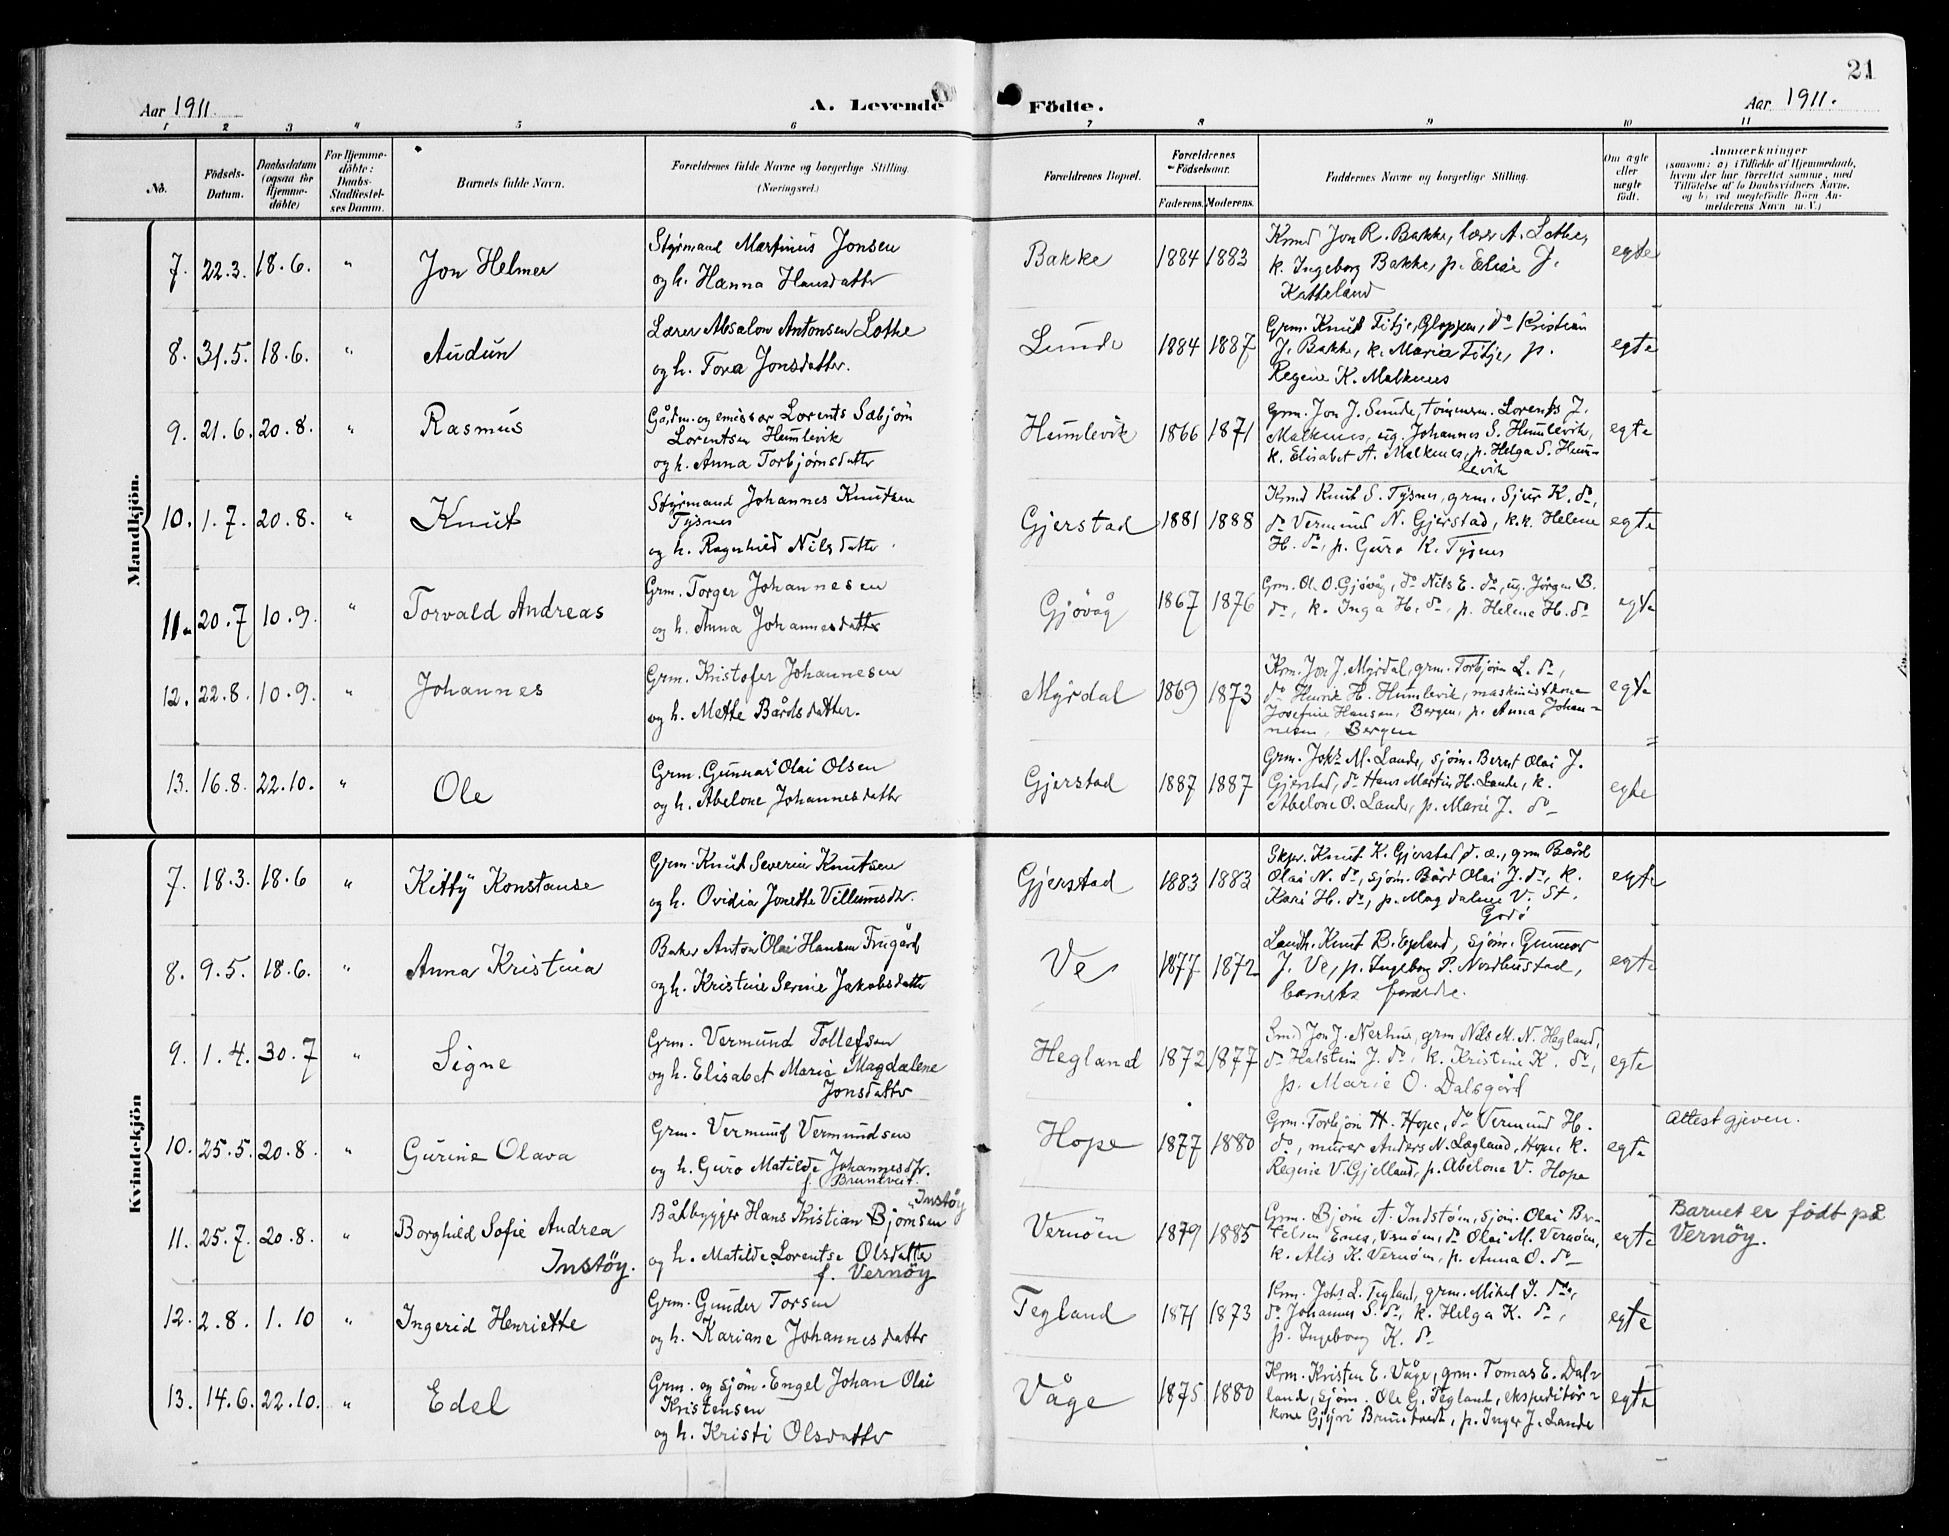 21
Aar 1911.
A. Levende Födte.
Aar 1911.
1 2 3 4 5 6 7 8 9 10 11
No.
Födsels-Datum.
Daabsdatum (ogsaa for Hjemmedöbte)
For Hjemmedöbte: Daabs-Stadfæstelses Datum.
Barnets fulde Navn.
Forældrenes fulde Navne og borgerlige Stilling. (Næringsvei.)
Forældrenes Bopæl.
Forældrenes Födselsaar.
Faderens. Moderens.
Faddernes Navne og borgerlige Stilling.
Om ægte eller uægte födt.
Anmærkninger
(saasom: a) i Tilfælde af Hjemmedaab,
hvem der har forrettet samme, med
Tilföielse af to Daabsvidners Navne.
og b) ved uægtefödte Börn An-
melderens Navn m. V.)
Mandkjön.
7. 22.3. 18.6. " Jon Helmer
Styrmand Martinus Jonsen
og h. Hanna Hansdatter
Bakke 1884 1883
Kmd Jon R. Bakke, lærer A. Lothe,
k. Ingeborg Bakke, p. Elise J.
Katteland
egte
8. 31.5. 18.6. " Audun
Lærer Absalon Antonsen Lothe
og h. Tora Jonsdatter.
Lunde 1884 1887
Grm. Knut Fitje, Gloppen, do Kristian
J. Bakke, k. Maria Fitje, p.
Regine K. Malkenes
egte
9. 21.6. 20.8. " Rasmus
Gårdm. og emissær Lorents Sæbjörn
Lorentsen Humlevik
og h. Anna Torbjørnsdatter
Humlevik 1866 1871
Grm. Jon J. Sunde, tömmerm. Lorents J.
Malkenes, ug. Johannes S. Humlevik,
k. Elisabet A. Malkenes, p. Helga S. Hum-
levik
egte
10. 1.7. 20.8. " Knut
Styrmand Johannes Knutsen
Tysnes
og h. Ragnhild Nilsdatter.
Gjerstad 1881 1888
Kmd Knut S. Tysnes, grm. Sjur K. do,
do Vermund N. Gjerstad, k.k. Helene
H. do, p. Guro K. Tysnes
egte
11. 20.7 10.9. " Torvald Andreas
Grm. Torger Johannesen
og h. Anna Johannesdatter
Gjövåg 1867 1876
Grm. Ol. O. Gjövåg, do Nils E. do, ug. Jørgen B.
do, k. Inga H. do, p. Helene H. do
egte
12. 22.8. 10.9. " Johannes
Grm. Kristofer Johannesen
og h. Mette Bårdsdatter.
Myrdal 1869 1873
Krm. Jon J. Myrdal, grm. Torbjörn L. do,
do Henrik H. Humlevik, maskinistkone
Josefine Hansen, Bergen, p. Anna Johan-
nesen, Bergen
egte
13. 16.8. 22.10. " Ole
Grm. Gunnar Olai Olsen
og h. Abelone Johannesdatter
Gjerstad 1887 1887
Grm. Johs M. Lande, sjöm. Bernt Olai J.
Gjerstad, do Hans Martin H. Lande, k.
Abelone O. Lande, p. Marie J. do
egte
Kvindekjön
7. 18.3. 18.6 " Kitty Konstanse
Grm. Knut Severin Knutsen
og h. Ovidia Jonette Villumsdtr.
Gjerstad 1883 1883
Skpr. Knut K. Gjerstad d. æ., grm Bård
Olai N. do, sjöm. Bård Olai J. do, k.
Kari H. do, p. Magdalene V. St.
Godö
egte
8. 9.5. 18.6. " Anna Kristina
Baker Anton Olai Hansen Frugård
og h. Kristine Serine Jakobsdatter
Ve 1877 1872
Landh. Knut B. Epland, sjöm. Gunnar
J. Ve, p. Ingeborg P. Nordhustad,
barnets forældre.
egte
9. 1.4. 30.7 " Signe
Grm. Vermund Tollefsen
og h. Elisabet Maria Magdalene
Jonsdatter
Hegland 1872 1877
Smd Jon J. Nerhus, grm Nils M. N. Hegland,
do Halstein J. do, k. Kristine K. do,
p. Marie O. Dalsgård
egte
10. 25.5. 20.8. " Gurine Olava
Grm. Vermund Vermundsen
og h. Guro Matilde Johannesdtr.
f. Bruntveit.
Hope 1877 1880
Grm. Torbjörn H. Hope, do Vermund H.
do, murer Anders N. Lægland, Hope, k.
Regine V. Gjelland, p. Abelone V. Hope
egte
Attest gjeven.
11. 25.7. 20.8. " Borghild Sofie Andrea
Instöy.
Båtbygger Hans Kristian Björnsen
Instöy
og h. Matilde Lorentse Olsdatter
f. Vernöy
Vernöen 1879 1885
Grm. Björn A. Indstöen, sjöm. Olai Ber-
telsen Enes, Vernöen, do Olai M. Vernöen,
k. Alis K. Vernöen, p. Anna O. do
egte
Barnet er födt på
Vernöy.
12. 2.8. 1.10 " Ingerid Henriette
Grm. Gunder Torsen
og h. Kariane Johannesdatter
Tegland 1871 1873
Krm. Johs L. Tegland, grm. Mikel J. do,
do Johannes S. do, k. Helga K. do,
p. Ingeborg K. do
egte
13. 14.6. 22.10. " Edel
Grm. og sjöm. Engel Johan Olai
Kristensen
og h. Kristi Olsdatter
Våge 1875 1880
Krm. Kristen E. Våge, grm. Tomas E. Dal-
land, sjöm. Ole G. Tegland, ekspeditör-
kone Gjyri Bruntvedt, p. Inger J. Lande
egte